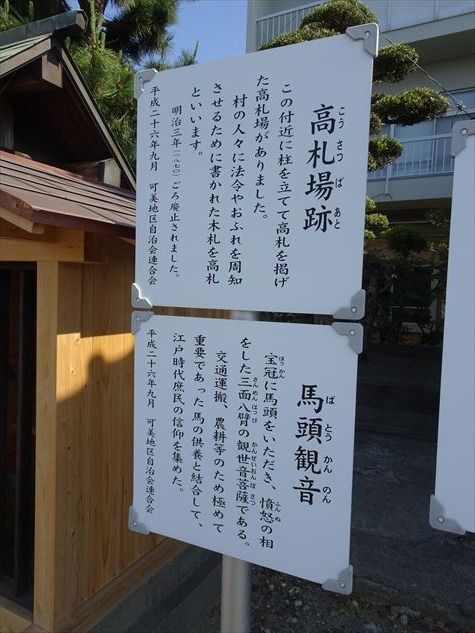 こうさつばあと
高札場跡
この付近に柱を立てて高札を掲げ
た高札場がありました。
村の人々に法令やおふれを周知
させるために書かれた木札を高札
といいます。
明治三年(一八七〇)ごろ廃止されました。
平成二十六年九月 可美地区自治会連合会
ばとうかんのん
馬頭観音
ほうかん
宝冠に馬頭をいただき、憤怒の相
ふんぬ
をした三面八臂の観世音菩薩である。
さんめんはっぴ かんぜいおんぼさつ
交通運搬、農耕等のため極めて
重要であった馬の供養と結合して、
江戸時代庶民の信仰を集めた。
平成二十六年九月 可美地区自治会連合会